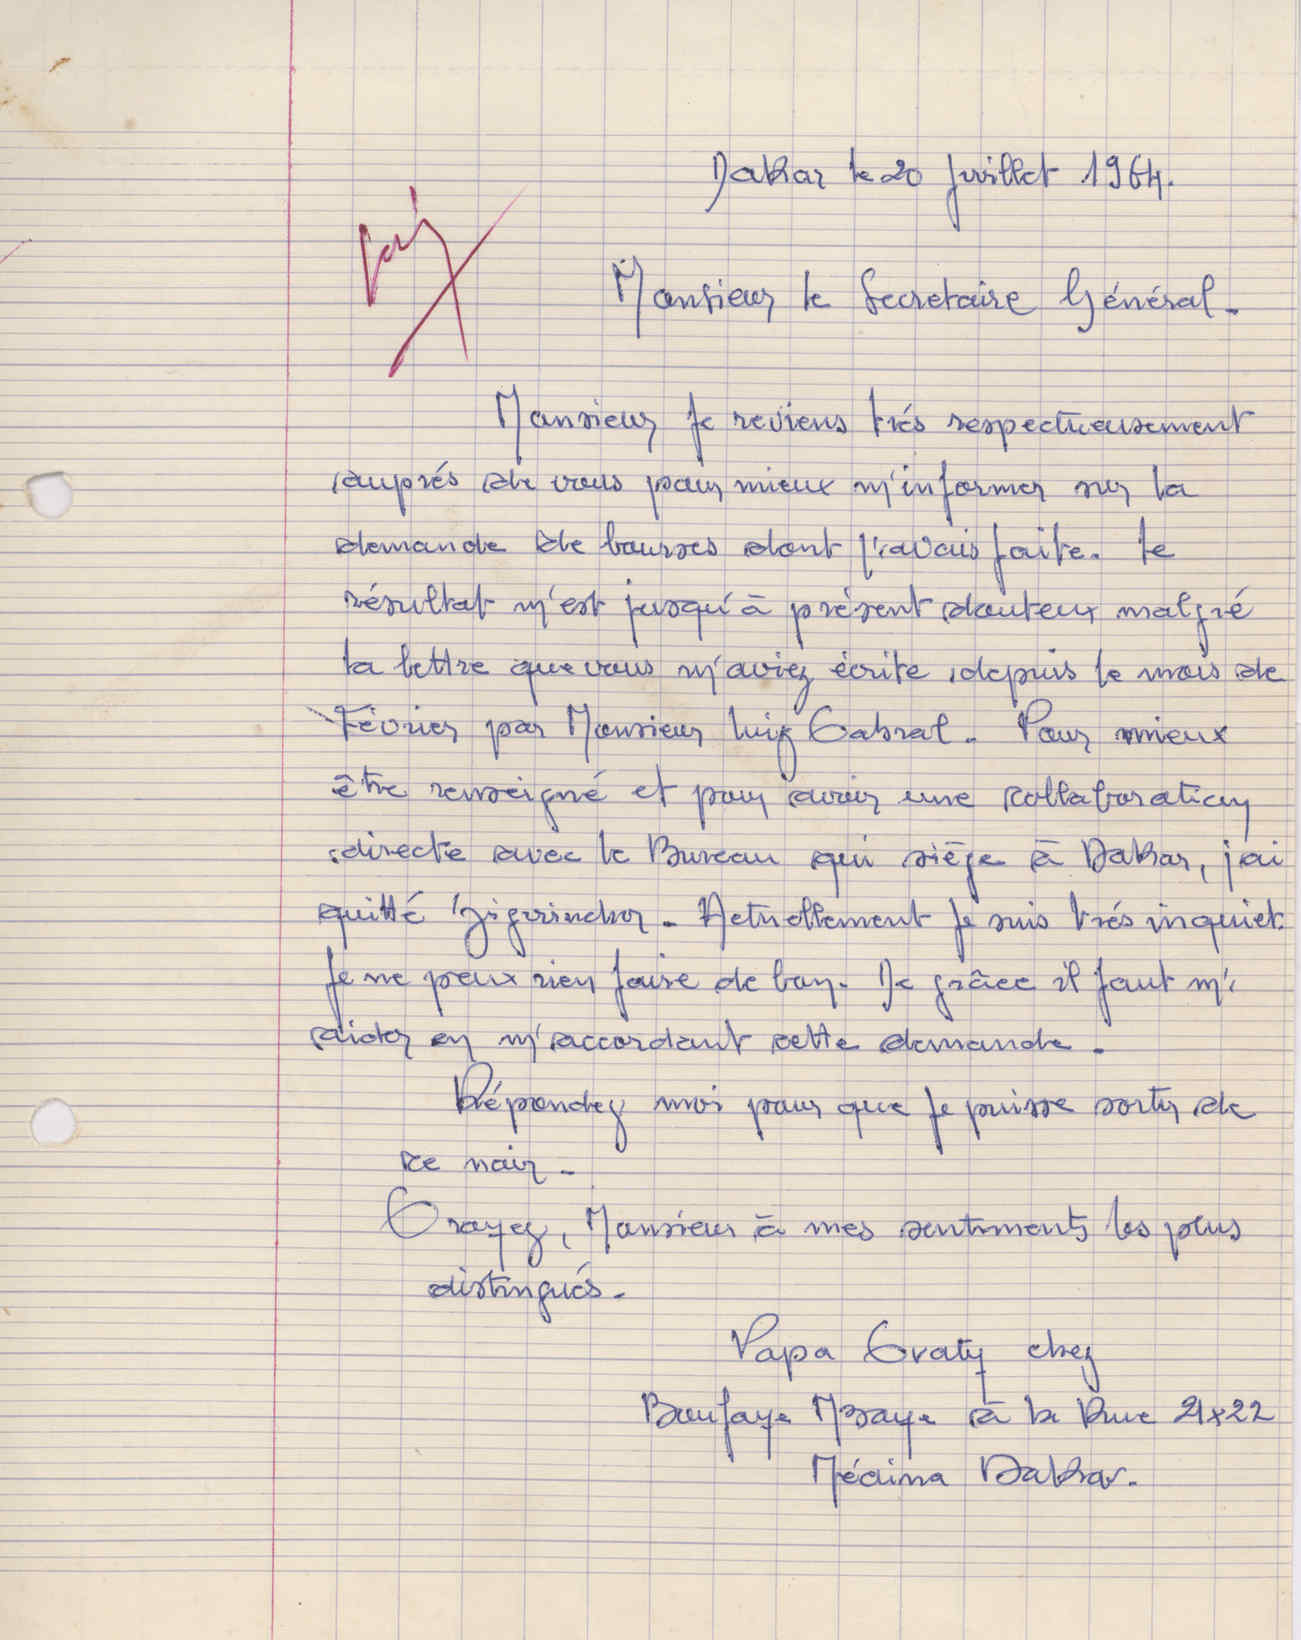 Dakar le 20 Juillet 1964.
Monsieur le Secretaire Général.
Monsieur je reviens trés respectueusement
auprés de vous pour mieux m'informer sur la
demande de bourses dont j'avais faite. Le
résultat m'est jusqu'à présent douteux malgré
la lettre que vous m'aviez écrite depuis le mois de
Février par Monsieur Luiz Cabral. Pour mieux
être renseigné et pour avoir une collaboration
directe avec le Bureau qui siège à Dakar, j'ai
quitté Ziguinchor. Actuellement je suis trés inquiet.
Je ne peux rien faire de bon. De grâce il faut m'
aider en m'accordant cette demande.
Répondez moi pour que je puisse sortir de
ce noir.
Croyez, Monsieur à mes sentiments les plus
distingués.
Papa Graty chez
Bounfaye Mbaye à la Rue 21x22
Médina Dakar.